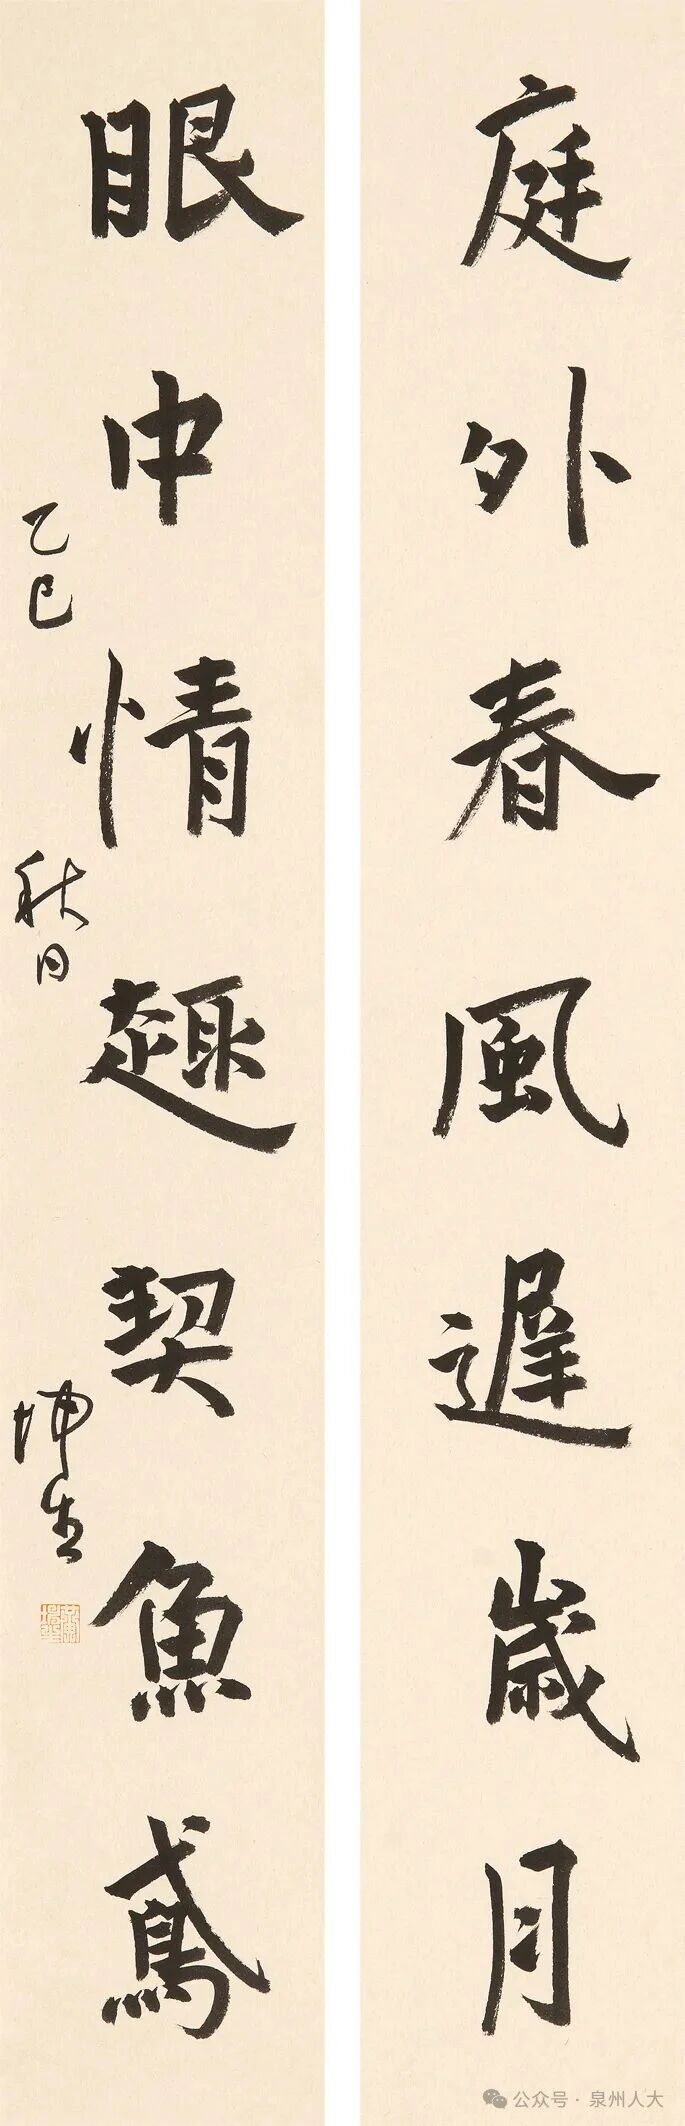 庭外春風遲歲月
眼中情趣契魚鳶
乙巳秋日坤生
公众号·泉州人大